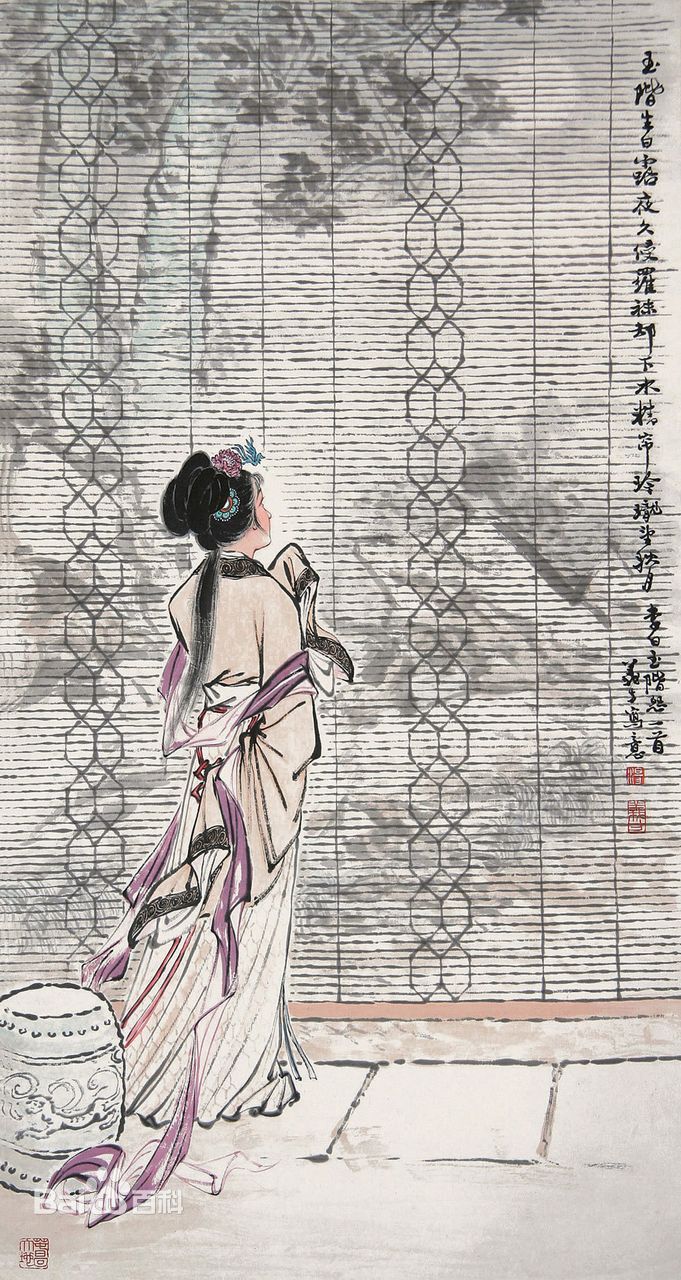 玉階生白露夜久侵羅襪却下水精帘玲瓏望秋月李白玉階怨一首
寫意
Bai 百科